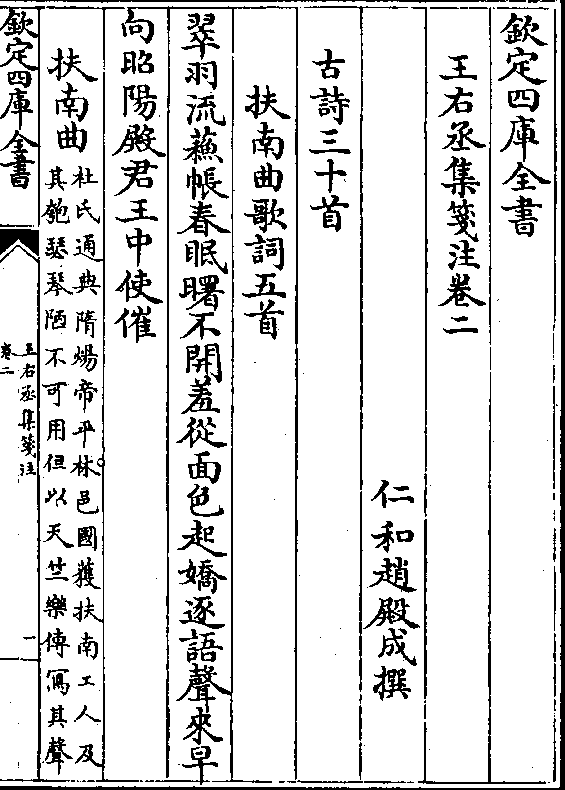 欽定四庫全書
王右丞集箋注卷二
仁和趙殿成撰
古詩三十首
扶南曲歌詞五首
翠羽流蘇帳春眠曙不開羞從面色起嬌逐語聲來早
向昭陽殿君王中使催
扶南曲
杜氏通典隋煬帝平林邑國獲扶南工人及
其匏瑟琴陋不可用但以天竺樂傳寫其聲
欽定四庫全書
王右丞集箋注
卷二
一